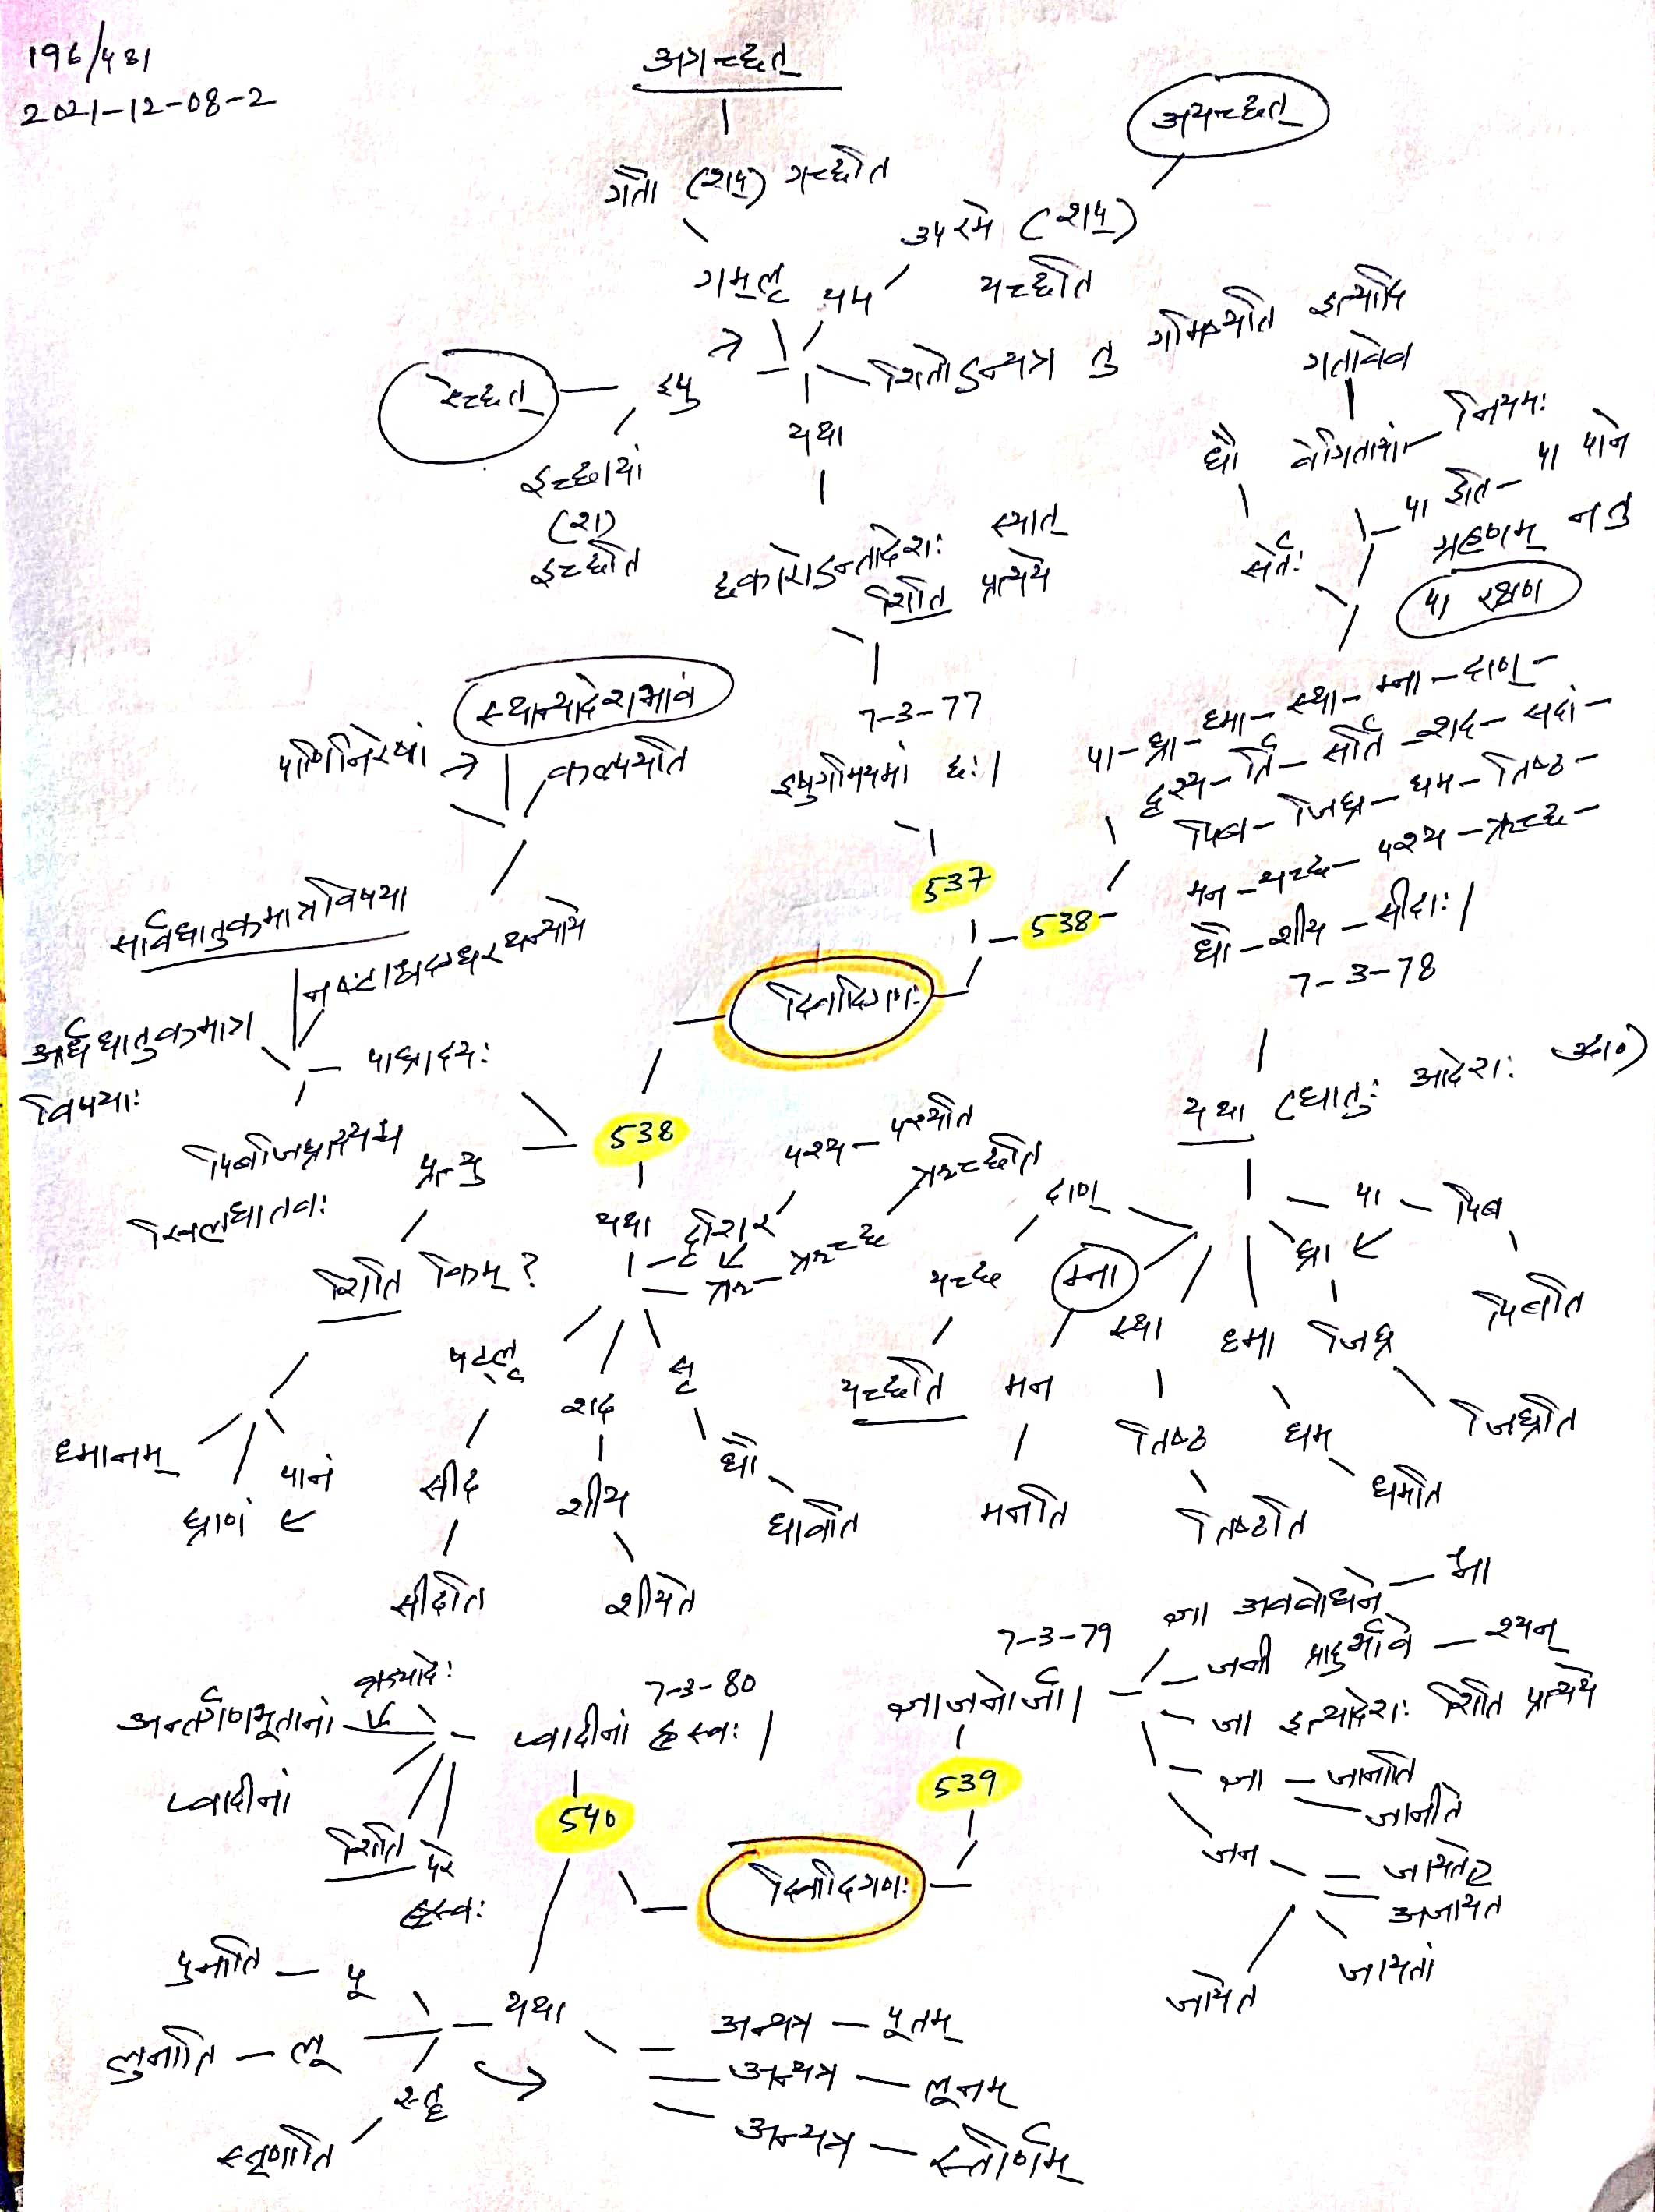 196/481
2021-12-08-2
अगच्छत्
अयच्छत्
गतौ (शप्) गच्छति
उपरमे (शप्)
यच्छति
गम्लृ
यम
ऐच्छत्
इषु
इच्छायां
(श)
इच्छति
शितोऽन्यत्र तु गमिष्यति इत्यादि
यथा
छकारोऽन्तादेशः स्यात्
शिति प्रत्यये
7-3-77
इषुगमियमां छः।
537
गतावेव
धौ वेगितायां नियमः
सर्तेः
पा इति - पा पाने
ग्रहणम् न तु
पा रक्षणे
पा-घ्रा-ध्मा-स्था-म्ना-दाण्-
दृश्य-र्ति-सर्ति-शद-सदां-
पिब-जिघ्र-धम-तिष्ठ-
मन-यच्छ-पश्य-ऋच्छ-
धौ-शीय-सीदाः।
7-3-78
538
स्थान्यादेशभावं
पाणिनिरेषां
कल्पयति
सार्वधातुकमात्रविषया
नष्टाश्वदग्धरथन्याये
आर्धधातुकमात्र
विषयाः
पाघ्रादयः
पिबजिघ्रादयश्च
खिलधातवः
दिवादिगणः
538
प्रत्यु
शिति किम्?
ध्मानम्
घ्राणं
पानं
यथा
दृशिर्
पश्य - पश्यति
ऋ - ऋच्छ
ऋच्छति
षद्लृ
सीद
सीदति
शद
शीय
शीयते
सृ
धौ
धावति
यथा (धातुः आदेशः उदा०)
दाण्
यच्छ
यच्छति
म्ना
मन
मनति
स्था
तिष्ठ
तिष्ठति
ध्मा
धम्
धमति
घ्रा
जिघ्र
जिघ्रति
पा - पिब
पिबति
7-3-79
ज्ञाजनोर्जा।
ज्ञा अवबोधने - श्ना
जनी प्रादुर्भावे - श्यन्
जा इत्यादेशः शिति प्रत्यये
ज्ञा - जानाति
जानीते
जन
जायते
अजायत
जायतां
जायेत
539
7-3-80
प्वादीनां ह्रस्वः।
540
क्र्यादेः
अन्तर्गणभूतानां
प्वादीनां
शिति परे
ह्रस्वः
दिवादिगणः
यथा
पुनाति - पू
लुनाति - लू
स्तॄ
स्तृणाति
अन्यत्र - पूतम्
अन्यत्र - लूनम्
अन्यत्र - स्तीर्णम्